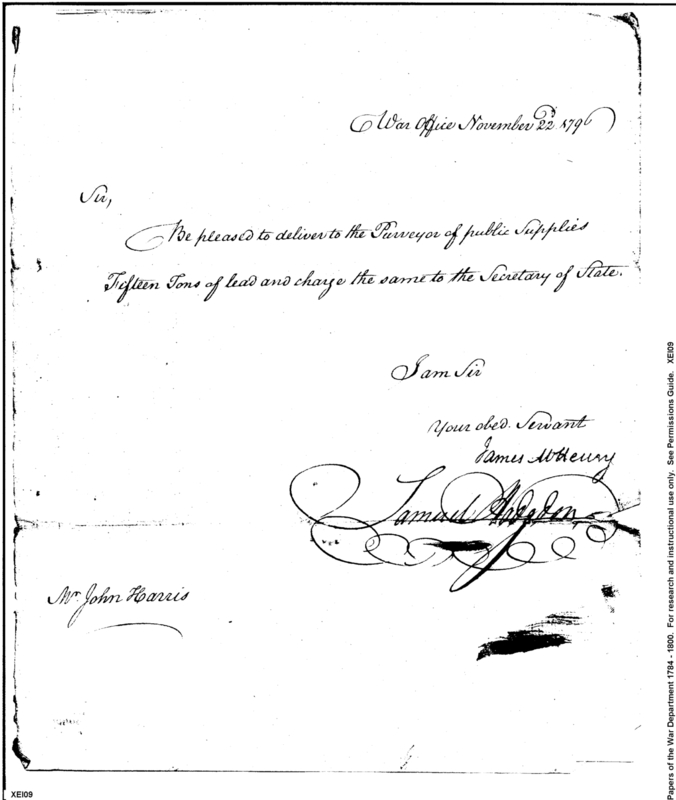 War Office November 22d 1796
Sir,
Be pleased to deliver to the Purveyor of public Supplies
Fifteen Tons of lead and charge the same to the Secretary of State.
I am Sir
Your obed. Servant
James McHenry
Samuel Hodgdon
Mr. John Harris
XEI09
Papers of the War Department 1784 - 1800. For research and instructional use only. See Permissions Guide. XEI09